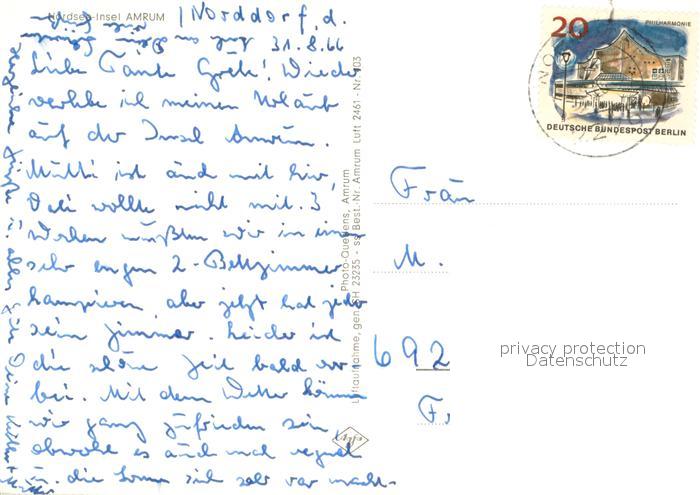 Nordsee-Insel AMRUM
Norddorf, d.
31.8.66
Liebe Tante Grete! Wieder
verlebe ich meinen Urlaub
auf der Insel Amrum.
Mutti ist auch mit hier,
Vati wollte nicht mit. 3
Wochen mußten wir in einem
sehr engen 2-Bettzimmer
kampieren, aber jetzt hat jeder
sein Zimmer. Leider ist
die schöne Zeit bald vor
bei. Mit dem Wetter können
wir ganz zufrieden sein,
obwohl es auch mal regnet
u. die Sonne sich sehr rar macht.
Photo-Quedens, Amrum
Luftaufnahme, gen. SH 23235 - Best.-Nr. Amrum Luft 2461 - Nr. 103
Agfa
20
PHILHARMONIE
DEUTSCHE BUNDESPOST BERLIN
Frau
M.
692
F.
privacy protection
Datenschutz